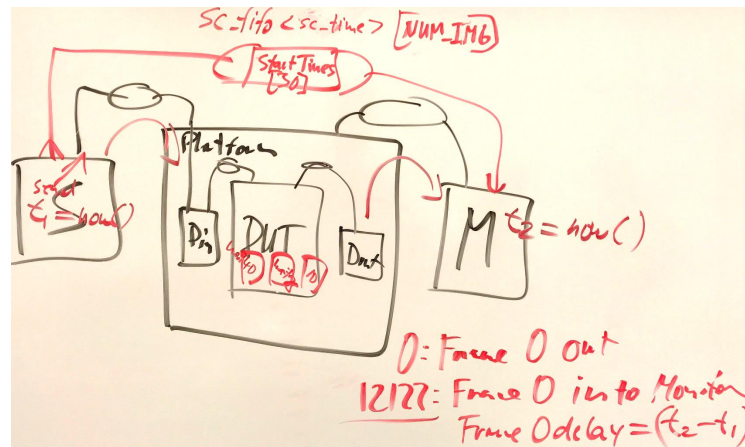 sc_fifo <sc_time> [NUM_IMG]
StartTimes
[30]
Platform
start
t1 = now()
S
Din
DUT
Dout
M
t2 = now()
0: Frame 0 out
12122: Frame 0 into Monitor
Frame 0 delay = (t2-t1)